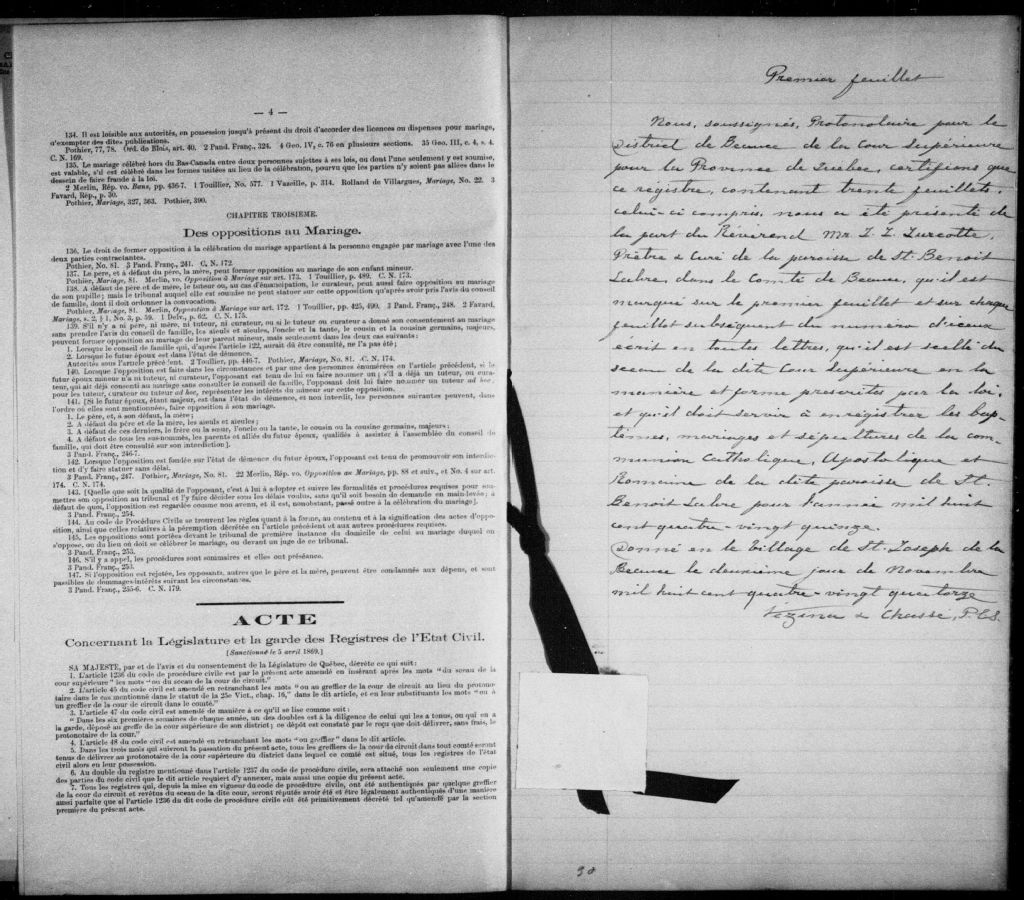 — 4 —
134. Il est loisible aux autorités, en possession jusqu'à présent du droit d'accorder des licences ou dispenses pour mariage,
d'exempter des dites publications.
Pothier, 77, 78. Ord. de Blois, art. 40. 2 Pand. Franç., 324. 4 Geo. IV, c. 76 en plusieurs sections. 35 Geo. III, c. 4, s. 4.
C. N. 169.
135. Le mariage célébré hors du Bas-Canada entre deux personnes sujettes à ses lois, ou dont l'une seulement y est soumise,
est valable, s'il est célébré dans les formes usitées au lieu de la célébration, pourvu que les parties n'y soient pas allées dans le
dessein de faire fraude à la loi.
2 Merlin, Rép. vo. Bans, pp. 436-7. 1 Touillier, No. 577. 1 Vazeille, p. 314. Rolland de Villargues, Mariage, No. 22. 3
Favard, Rép., p. 50.
Pothier, Mariage, 327, 363. Pothier, 390.
CHAPITRE TROISIEME.
Des oppositions au Mariage.
136. Le droit de former opposition à la célébration du mariage appartient à la personne engagée par mariage avec l'une des
deux parties contractantes.
Pothier, No. 81. 3 Pand. Franç., 241. C. N. 172.
137. Le père, et à défaut du père, la mère, peut former opposition au mariage de son enfant mineur.
Pothier, Mariage, 81. Merlin, vo. Opposition à Mariage sur art. 173. 1 Touillier, p. 489. C. N. 173.
138. A défaut de père et de mère, le tuteur ou, au cas d'émancipation, le curateur, peut aussi faire opposition au mariage
de son pupille; mais le tribunal auquel elle est soumise ne peut statuer sur cette opposition qu'après avoir pris l'avis du conseil
de famille, dont il doit ordonner la convocation.
Pothier, Mariage, 81. Merlin, Opposition à Mariage sur art. 172. 1 Touillier, pp. 425, 490. 3 Pand. Franç., 248. 2 Favard,
Mariage, s. 2, § 1, No. 3, p. 59. 1 Delv., p. 62. C. N. 175.
139. S'il n'y a ni père, ni mère, ni tuteur, ni curateur, ou si le tuteur ou curateur a donné son consentement au mariage
sans prendre l'avis du conseil de famille, les aïeuls et aïeules, l'oncle et la tante, le cousin et la cousine germains, majeurs,
peuvent former opposition au mariage de leur parent mineur, mais seulement dans les deux cas suivants:
1. Lorsque le conseil de famille qui, d'après l'article 122, aurait dû être consulté, ne l'a pas été;
2. Lorsque le futur époux est dans l'état de démence.
Autorités sous l'article précédent. 2 Touillier, pp. 446-7. Pothier, Mariage, No. 81. C. N. 174.
140. Lorsque l'opposition est faite dans les circonstances et par une des personnes énumérées en l'article précédent, si le
futur époux mineur n'a ni tuteur, ni curateur, l'opposant est tenu de lui en faire nommer un; s'il a déjà un tuteur, ou cura-
teur, qui ait déjà consenti au mariage sans consulter le conseil de famille, l'opposant doit lui faire nommer un tuteur ad hoc,
pour les tuteur, curateur ou tuteur ad hoc, représenter les intérêts du mineur sur cette opposition.
141. [Si le futur époux, étant majeur, est dans l'état de démence, et non interdit, les personnes suivantes peuvent, dans
l'ordre où elles sont mentionnées, faire opposition à son mariage.
1. Le père, et, à son défaut, la mère;
2. A défaut du père et de la mère, les aïeuls et aïeules;
3. A défaut de ces derniers, le frère ou la sœur, l'oncle ou la tante, le cousin ou la cousine germains, majeurs;
4. A défaut de tous les sus-nommés, les parents et alliés du futur époux, qualifiés à assister à l'assemblée du conseil de
famille, qui doit être consulté sur son interdiction].
3 Pand. Franç., 246-7.
142. Lorsque l'opposition est fondée sur l'état de démence du futur époux, l'opposant est tenu de promouvoir son interdic-
tion et d'y faire statuer sans délai.
3 Pand. Franç., 247. Pothier, Mariage, No. 81. 22 Merlin, Rép. vo. Opposition au Mariage, pp. 88 et suiv., et No. 4 sur art.
174. C. N. 174.
143. [Quelle que soit la qualité de l'opposant, c'est à lui à adopter et suivre les formalités et procédures requises pour sou-
mettre son opposition au tribunal et l'y faire décider sous les délais voulus, sans qu'il soit besoin de demande en main-levée; à
défaut de quoi, l'opposition est regardée comme non avenue, et il est, nonobstant, passé outre à la célébration du mariage].
3 Pand. Franç., 254.
144. Au code de Procédure Civile se trouvent les règles quant à la forme, au contenu et à la signification des actes d'oppo-
sition, ainsi que celles relatives à la péremption décrétée en l'article précédent et aux autres procédures requises.
145. Les oppositions sont portées devant le tribunal de première instance du domicile de celui au mariage duquel on
s'oppose, ou du lieu où doit se célébrer le mariage, ou devant un juge de ce tribunal.
3 Pand. Franç., 253.
146. S'il y a appel, les procédures sont sommaires et elles ont préséance.
3 Pand. Franç., 253.
147. Si l'opposition est rejetée, les opposants, autres que le père et la mère, peuvent être condamnés aux dépens, et sont
passibles de dommages-intérêts suivant les circonstances.
3 Pand. Franç., 255-6. C. N. 179.
ACTE
Concernant la Législature et la garde des Registres de l'Etat Civil.
[Sanctionné le 5 avril 1869.]
SA MAJESTE, par et de l'avis et du consentement de la Législature de Québec, décrète ce qui suit:
1. L'article 1236 du code de procédure civile est par le présent acte amendé en insérant après les mots "du sceau de la
cour supérieure" les mots "ou du sceau de la cour de circuit."
2. L'article 45 du code civil est amendé en retranchant les mots "ou au greffier de la cour de circuit au lieu du protono-
taire dans le cas mentionné dans le statut de la 25e Vict., chap. 16," dans le dit article, et en leur substituant les mots "ou à
un greffier de la cour de circuit dans le comté."
3. L'article 47 du code civil est amendé de manière à ce qu'il se lise comme suit:
"Dans les six premières semaines de chaque année, un des doubles est à la diligence de celui qui les a tenus, ou qui en a
la garde, déposé au greffe de la cour supérieure de son district; ce dépôt est constaté par le reçu que doit délivrer, sans frais, le
protonotaire de la cour."
4. L'article 48 du code civil est amendé en retranchant les mots "ou greffier" dans le dit article.
5. Dans les trois mois qui suivront la passation du présent acte, tous les greffiers de la cour de circuit dans tout comté seront
tenus de délivrer au protonotaire de la cour supérieure du district dans lequel ce comté est situé, tous les registres de l'état
civil alors en leur possession.
6. Au double du registre mentionné dans l'article 1237 du code de procédure civile, sera attaché non seulement une copie
des parties du code civil que le dit article requiert d'y annexer, mais aussi une copie du présent acte.
7. Tous les registres qui, depuis la mise en vigueur du code de procédure civile, ont été authentiqués par quelque greffier
de la cour de circuit et revêtus du sceau de la dite cour, seront réputés avoir été et être légalement authentiqués d'une manière
aussi parfaite que si l'article 1236 du dit code de procédure civile eût été primitivement décrété tel qu'amendé par la section
première du présent acte.
Premier feuillet
Nous, soussignés, Protonotaire pour le
District de Beauce de la Cour Supérieure
pour la Province de Québec, certifions que
ce registre, contenant trente feuillets,
celui-ci compris, nous a été présenté de
la part du Révérend Mr. Z. Z. Turcotte,
Prêtre & Curé de la paroisse de St. Benoit
Labre, dans le Comté de Beauce, qu'il est
marqué sur le premier feuillet et sur chaque
feuillet subséquent du numéro d'iceux
écrit en toutes lettres, qu'il est scellé du
sceau de la dite Cour Supérieure en la
manière et forme prescrites par la loi,
et qu'il doit servir à enregistrer les bap
têmes, mariages et sépultures de la com
munion Catholique, Apostolique et
Romaine de la dite paroisse de St.
Benoit Labre pour l'année mil huit
cent quatre-vingt quinze.
Donné en le Village de St. Joseph de la
Beauce le deuxième jour de Novembre
mil huit cent quatre-vingt quatorze
Vézina & Chassé, P.C.S.
30